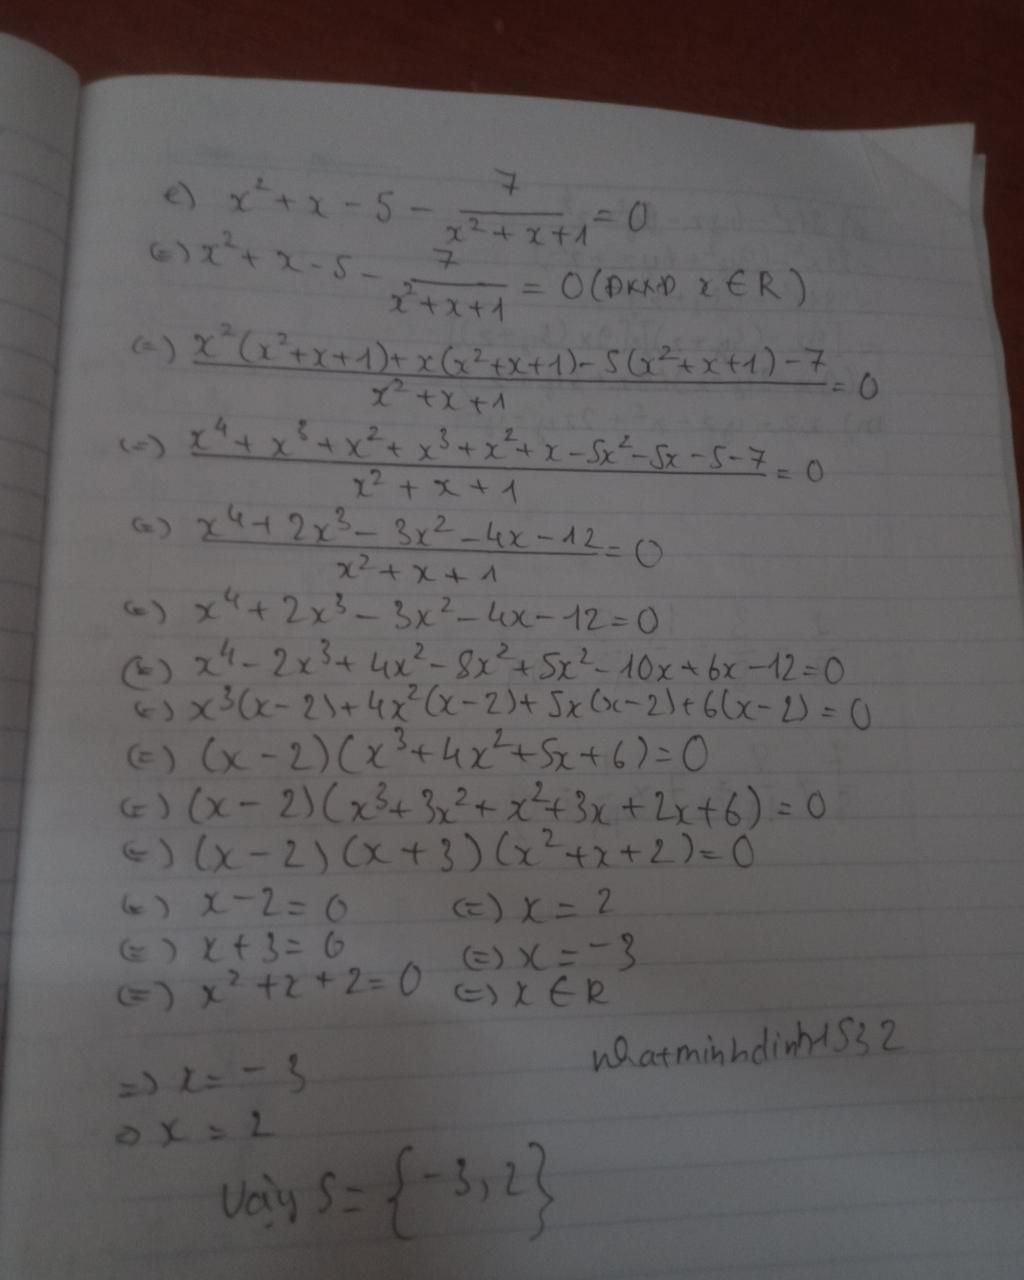 e) x² + x - 5 - 7/(x² + x + 1) = 0
(=) x² + x - 5 - 7/(x² + x + 1) = 0 (ĐKXĐ x ∈ R)
(=) (x²(x² + x + 1) + x(x² + x + 1) - 5(x² + x + 1) - 7)/(x² + x + 1) = 0
(=) (x⁴ + x³ + x² + x³ + x² + x - 5x² - 5x - 5 - 7)/(x² + x + 1) = 0
(=) (x⁴ + 2x³ - 3x² - 4x - 12)/(x² + x + 1) = 0
(=) x⁴ + 2x³ - 3x² - 4x - 12 = 0
(=) x⁴ - 2x³ + 4x² - 8x² + 5x² - 10x + 6x - 12 = 0
(=) x³(x - 2) + 4x²(x - 2) + 5x(x - 2) + 6(x - 2) = 0
(=) (x - 2)(x³ + 4x² + 5x + 6) = 0
(=) (x - 2)(x³ + 3x² + x² + 3x + 2x + 6) = 0
(=) (x - 2)(x + 3)(x² + x + 2) = 0
(=) x - 2 = 0 (=) x = 2
(=) x + 3 = 0 (=) x = -3
(=) x² + x + 2 = 0 (=) x ∈ R
nhatminhdinh1532
=) x = -3
x = 2
Vậy S = {-3, 2}